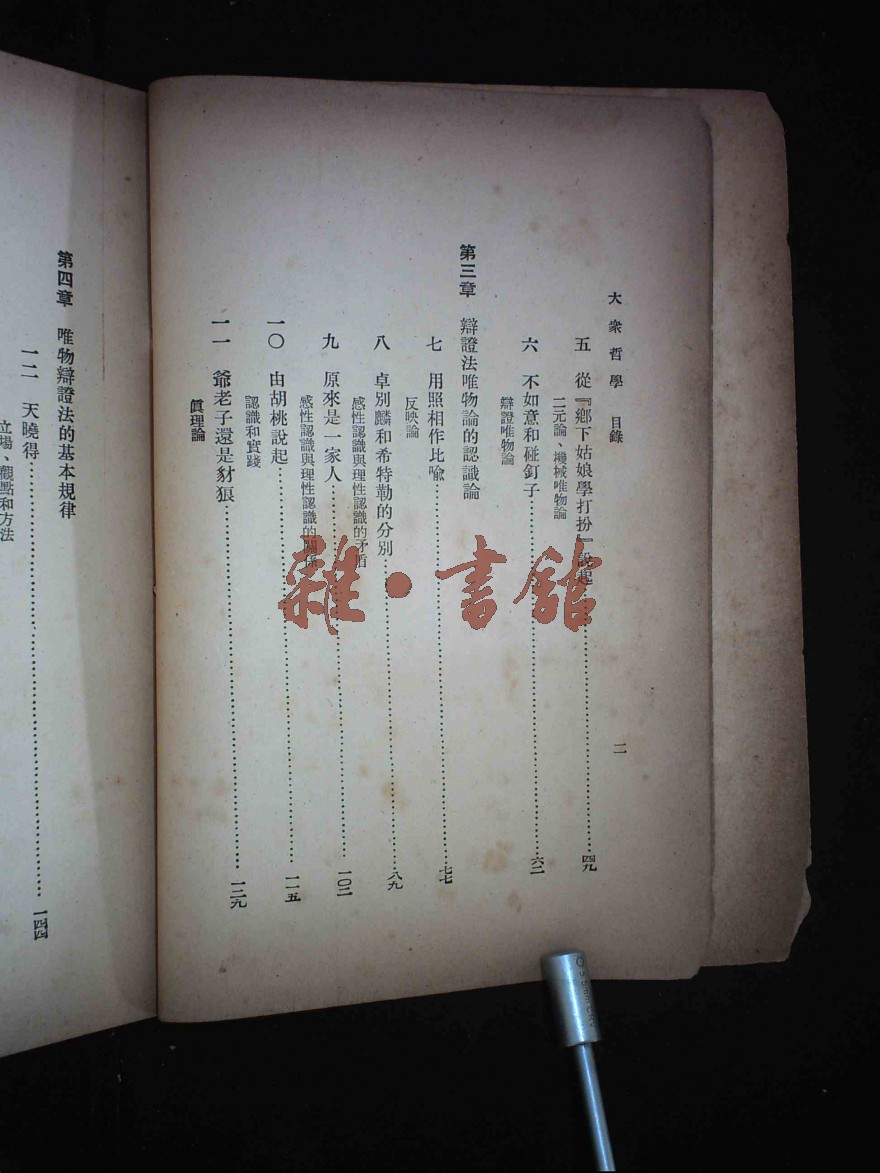 大衆哲學　目錄
二
五　從『鄉下姑娘學打扮』說起……四九
二元論、機械唯物論
六　不如意和碰釘子……六二
辯證唯物論
第三章　辯證法唯物論的認識論
七　用照相作比喩……七七
反映論
八　卓別麟和希特勒的分別……八九
感性認識與理性認識的矛盾
九　原來是一家人……一〇二
感性認識與理性認識的關係
一〇　由胡桃說起……一一五
認識和實踐
一一　爺老子還是豺狼……一二九
眞理論
第四章　唯物辯證法的基本規律
一二　天曉得……一四四
立場、觀點和方法
雜・書館